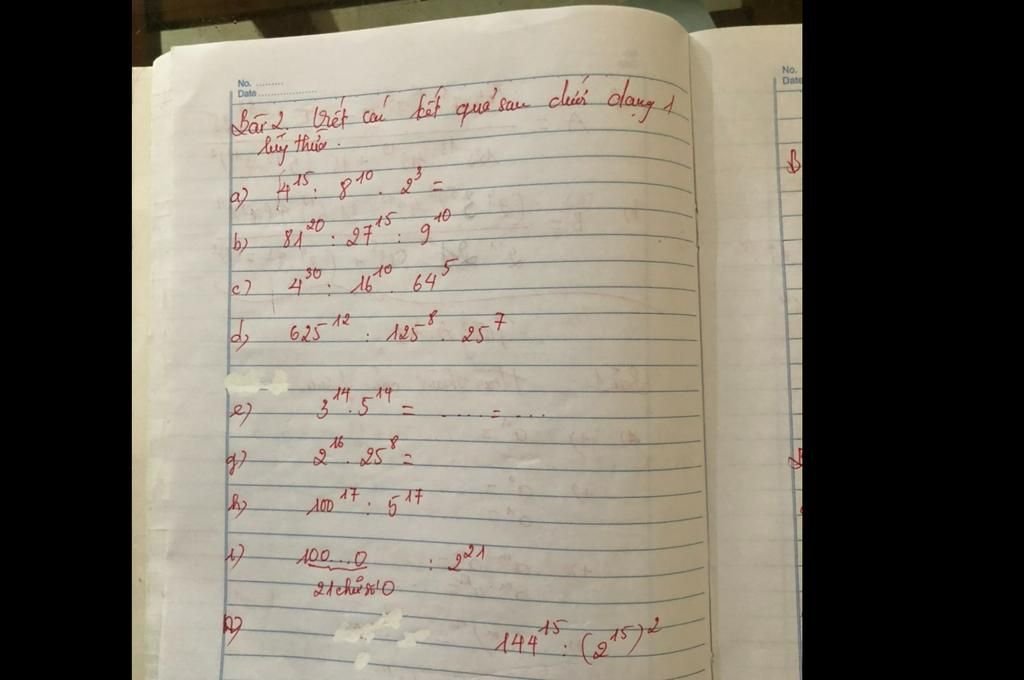 No. ......... No.
Date ................... Date
Bài 2. Viết các kết quả sau dưới dạng 1
lũy thừa.
a) 4^15 . 8^10 . 2^3 =
b) 81^20 : 27^15 : 9^10
c) 4^30 : 16^10 . 64^5
d) 625^12 : 125^8 . 25^7
e) 3^14 . 5^14 = ..... = ...
g) 2^16 . 25^8 =
h) 100^17 : 5^17
i) 100...0 : 2^21
21 chữ số 0
k) 144^15 : (2^15)^2